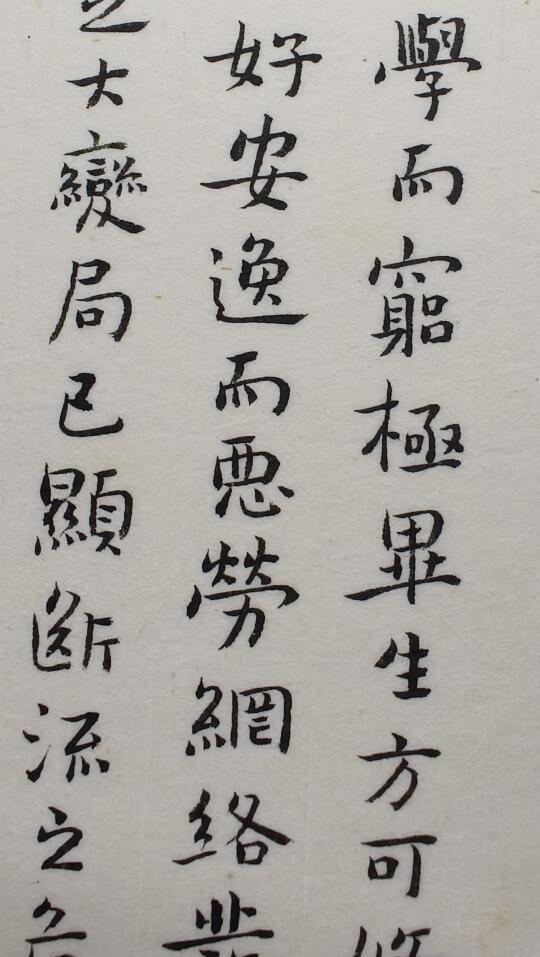 學而窮極畢生方可
好安逸而惡勞網絡
之大變局已顯斷流之